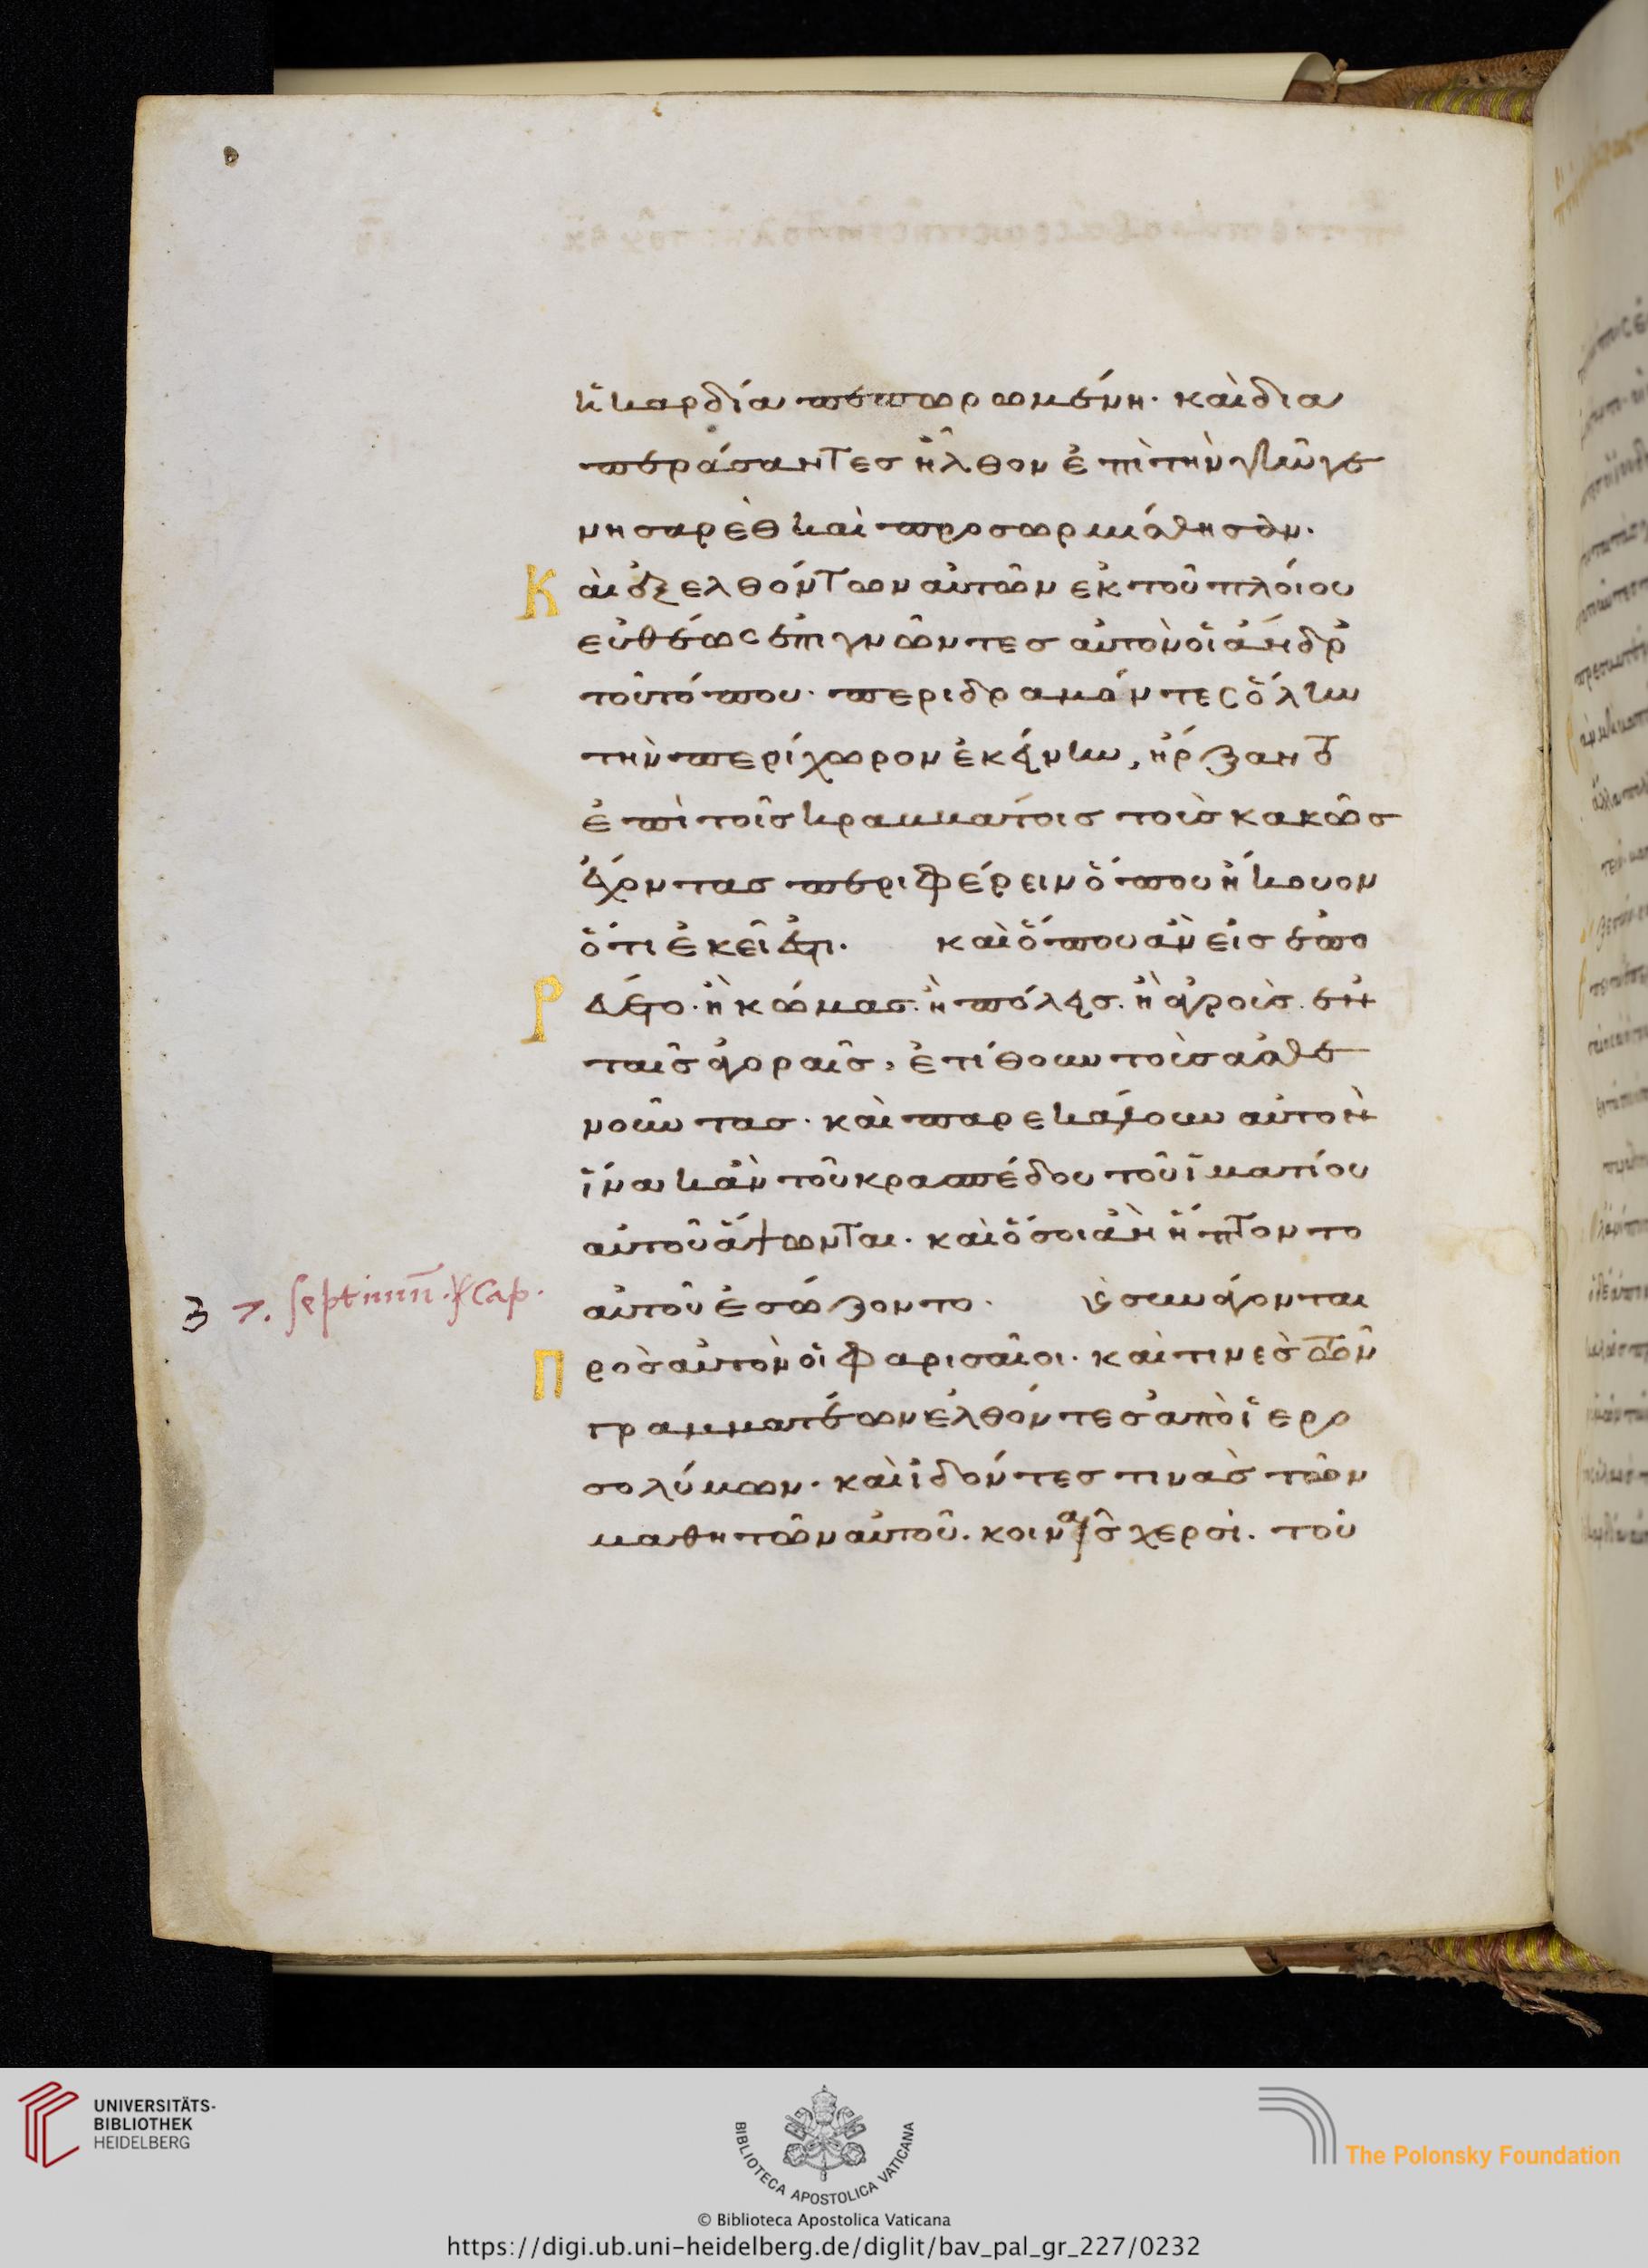 ἡ καρδία πεπωρωμένη· καὶ δια
περάσαντες ἦλθον ἐπὶ τὴν γῆν γε
νησαρὲθ καὶ προσωρμίσθησαν·
Καὶ ἐξελθόντων αὐτῶν ἐκ τοῦ πλοίου
εὐθέως ἐπιγνῶντες αὐτὸν οἱ ἄνδρ
τοῦ τόπου· περιδραμόντες ὅλην
τὴν περίχωρον ἐκείνην, ἤρξαντο
ἐπὶ τοῖς κραμμάτοις τοὺς κακῶς
ἔχοντας περιφέρειν ὅπου ἤκουον
ὅτι ἐκεῖ ἐστι· καὶ ὅπου ἂν εἰσεπο
Ρεύετο· ἢ κώμας· ἢ πόλεις· ἢ ἀγροὺς· ἐν
ταῖς ἀγοραῖς, ἐτίθουν τοὺς ἀσθε
νοῦντας· καὶ παρεκάλουν αὐτὸν
ἵνα κἂν τοῦ κρασπέδου τοῦ ἱματίου
αὐτοῦ ἅψωνται· καὶ ὅσοι ἂν ἥπτοντο
αὐτοῦ ἐσώζοντο· Καὶ συνάγονται
Πρὸς αὐτὸν οἱ Φαρισαῖοι· καὶ τινὲς τῶν
γραμματέων ἐλθόντες ἀπὸ ἱερο
σολύμων· καὶ ἰδόντες τινὰς τῶν
μαθητῶν αὐτοῦ· κοιναῖς χερσὶ· τοῦ
3 7. septimũ Cap.
UNIVERSITÄTS-
BIBLIOTHEK
HEIDELBERG
BIBLIOTECA APOSTOLICA VATICANA
© Biblioteca Apostolica Vaticana
The Polonsky Foundation
https://digi.ub.uni-heidelberg.de/diglit/bav_pal_gr_227/0232